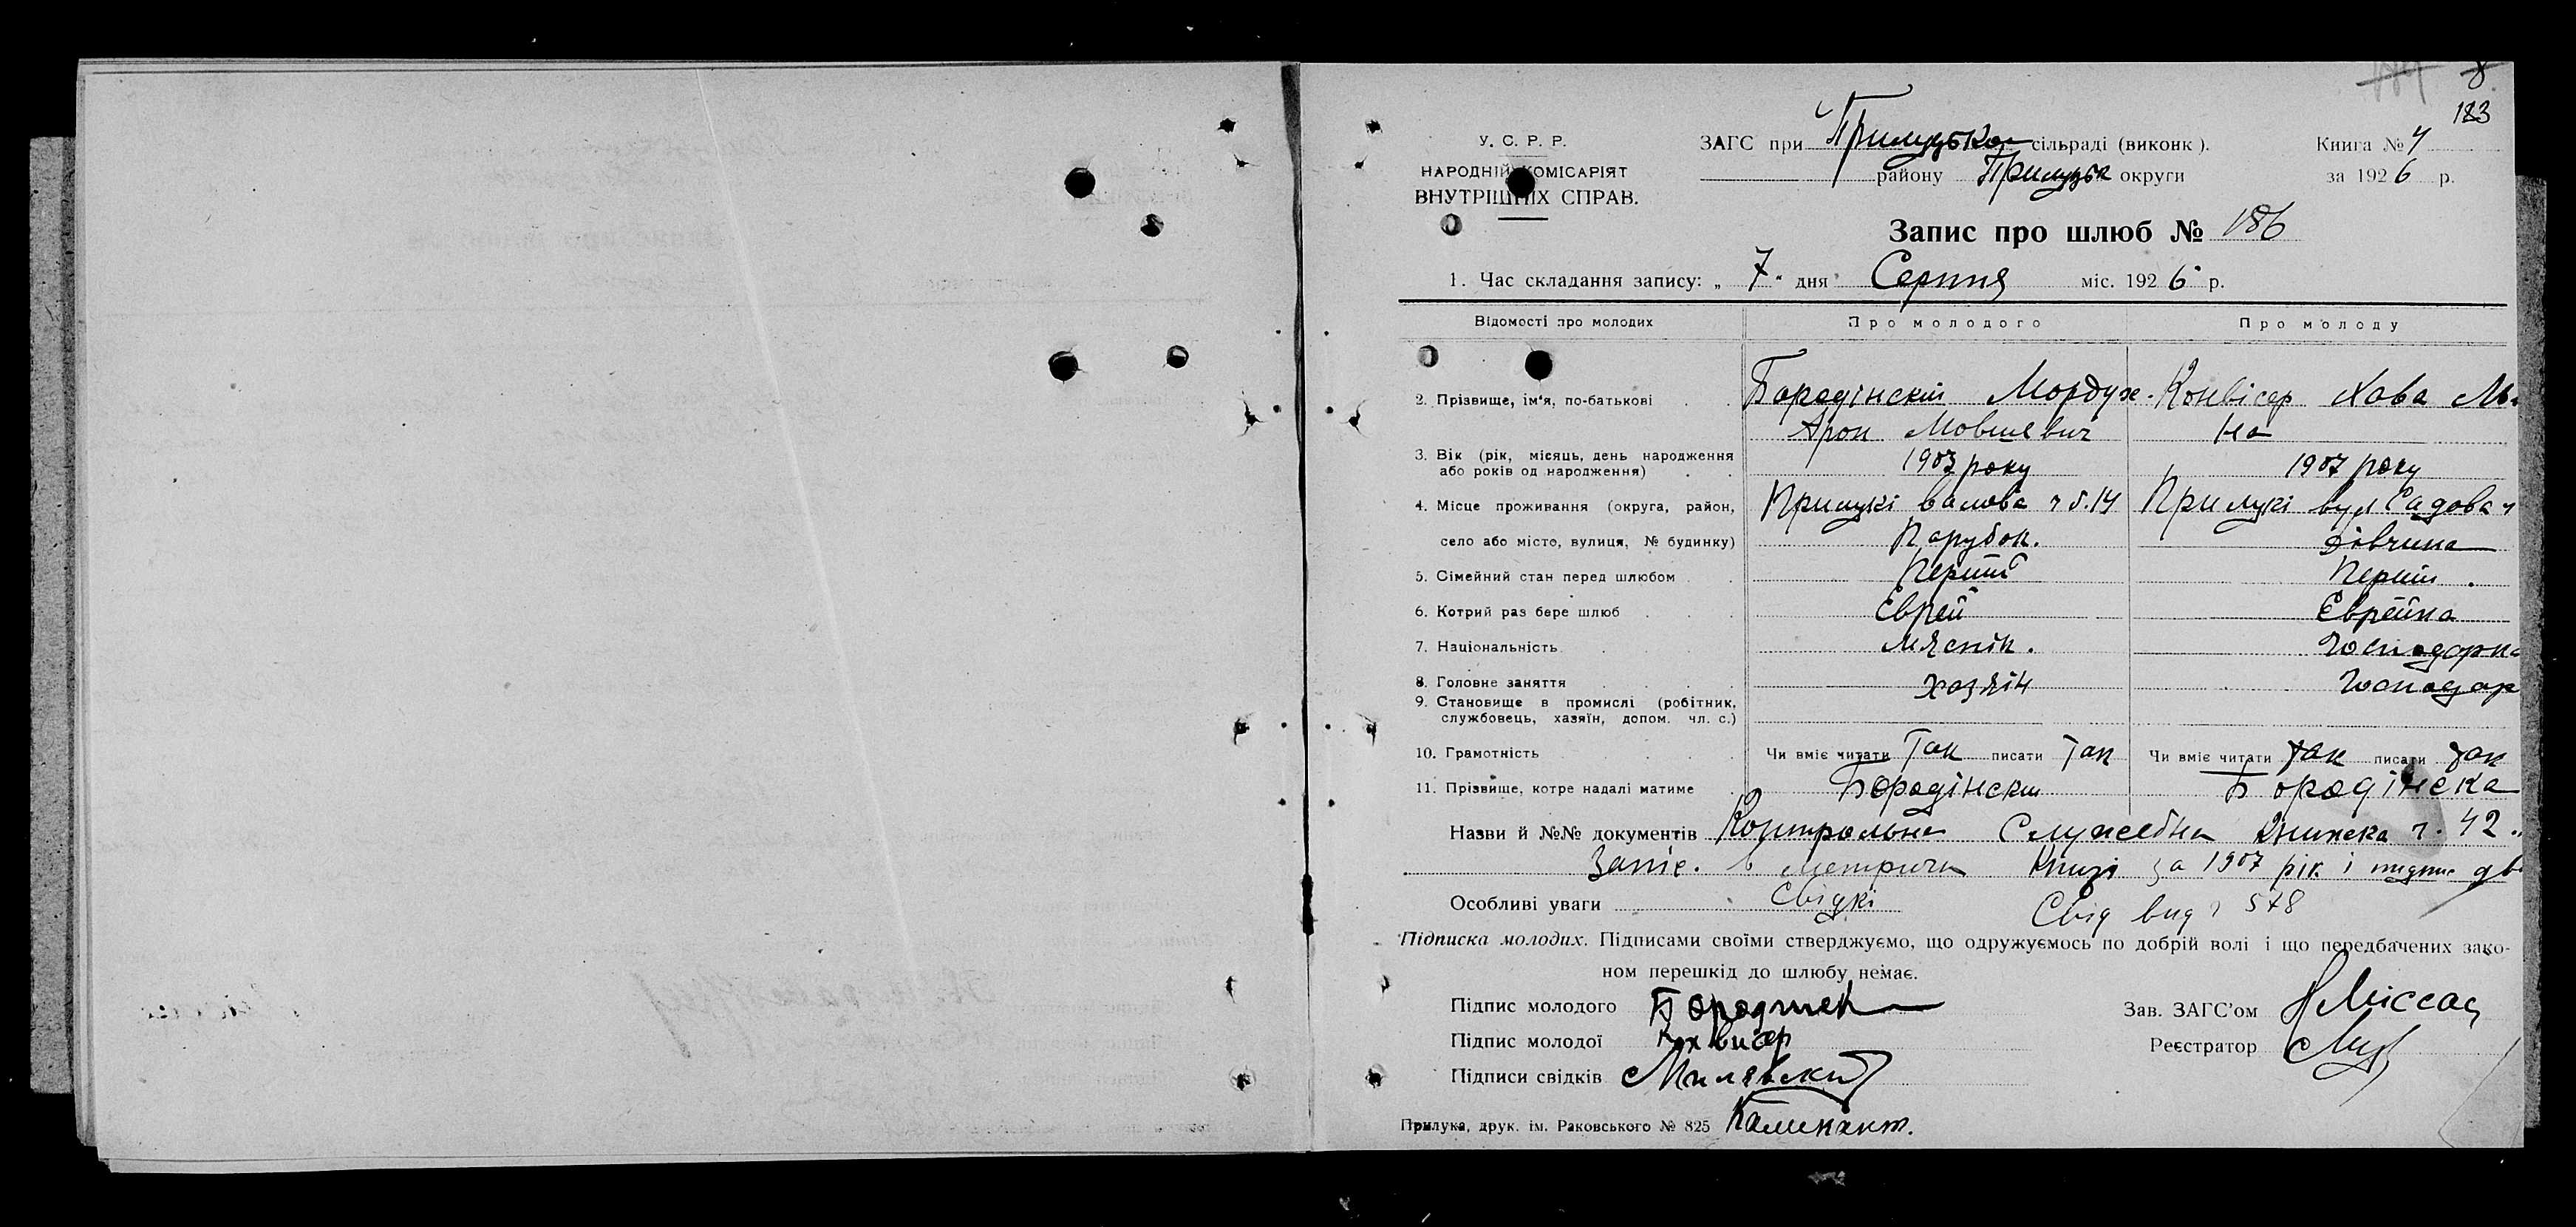 183
У. С. Р. Р.
НАРОДНІЙ КОМІСАРІЯТ
ВНУТРІШНІХ СПРАВ.
ЗАГС при Прилуцькой сільраді (виконк).
району Прилуцьк округи
Книга № 4
за 1926 р.
Запис про шлюб № 186
1. Час складання запису: „ 7 " дня Серпня міс. 1926 р.
Відомості про молодих Про молодого Про молоду
2. Прізвище, ім'я, по-батькові Бородінский Мордух- Конвісер Хава
Арон Мовшевич на
3. Вік (рік, місяць, день народження 1903 року 1907 року
або років од народження)
4. Місце проживання (округа, район, Прилукі Валова ч б. 14 Прилукі вул Садова ч
село або місто, вулиця, № будинку) Парубок. дівчина
5. Сімейний стан перед шлюбом Перший Перший.
6. Котрий раз бере шлюб Єврей Єврейка
7. Національність Мяснік. Господарка
8. Головне заняття хазяін Господар
9. Становище в промислі (робітник,
службовець, хазяїн, допом. чл. с.)
10. Грамотність Чи вміє читати Так писати Так Чи вміє читати так писати так
11. Прізвище, котре надалі матиме Бородінский Бородінська
Назви й №№ документів Контрольна Служебна Книжка ч. 42
Запіс. в метричн Книзі за 1907 рік і підпис дв
свідкі
Особливі уваги Свід вид ч 578
Підписка молодих. Підписами своїми стверджуємо, що одружуємось по добрій волі і що передбачених зако-
ном перешкід до шлюбу немає.
Підпис молодого Бородинск Зав. ЗАГС'ом Міссац
Підпис молодої Конвисер Реєстратор
Підписи свідків Милявский
Прилука, друк. ім. Раковського № 825